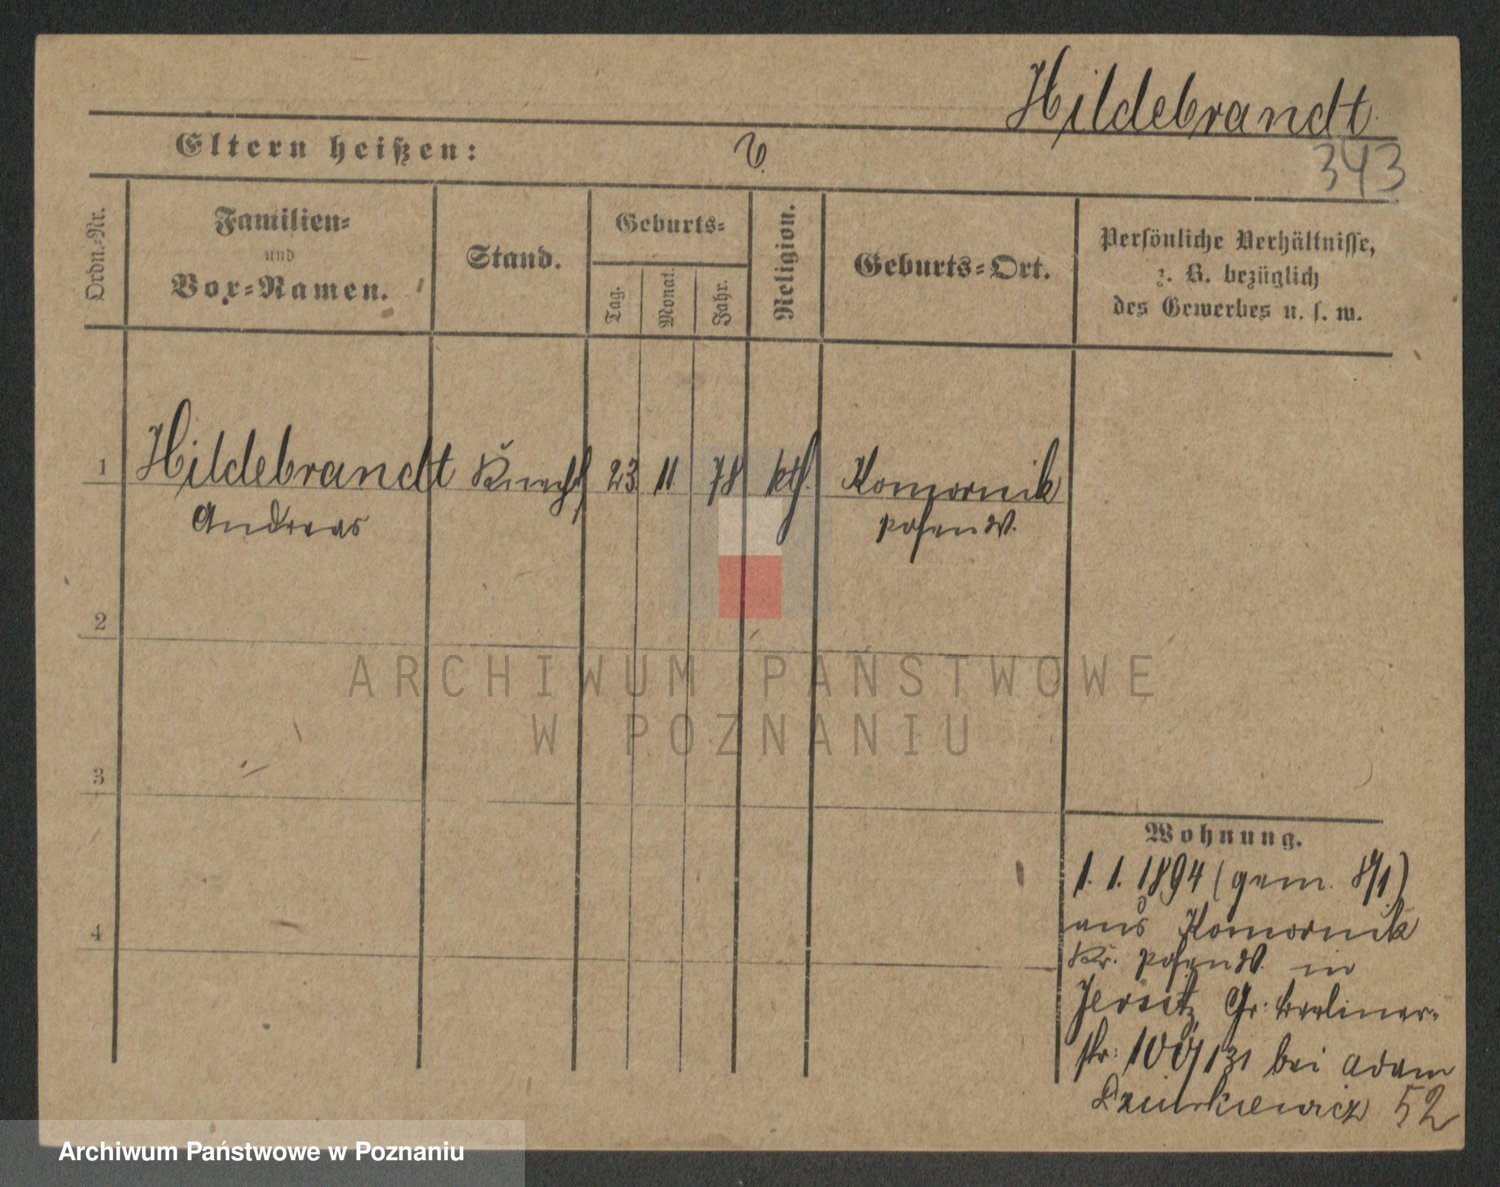 Hildebrandt
343
Eltern heißen:
Ordn.=Nr.
Familien=
und
Vor=Namen.
Stand.
Geburts=
Tag.
Monat.
Jahr.
Religion.
Geburts=Ort.
Persönliche Verhältnisse,
z. B. bezüglich
des Gewerbes u. s. w.
1 Hildebrandt Knecht 23 11 78 kth. Komornik
Andreas Posen W.
2
3
4
Wohnung.
1. 1. 1894 (gem. 8/1)
aus Komornik
Kr. Posen W. in
Jersitz Gr. Berliner-
str. bei Adam
52
ARCHIWUM PAŃSTWOWE
W POZNANIU
Archiwum Państwowe w Poznaniu